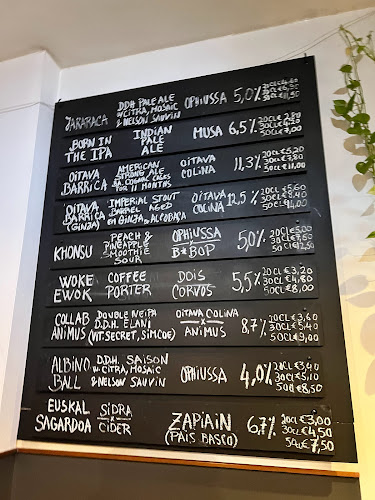 JARARACA DDH PALE ALE W/ CITRA, MOSAIC & NELSON SAUVIN OPHIUSSA 5,0% 20CL €4,60
50CL €11,50
BORN IN THE IPA INDIAN PALE ALE MUSA 6,5% 20CL €2,80
50CL €7,00
OITAVA BARRICA AMERICAN STRONG ALE FOR 11 MONTHS OITAVA COLINA 11,3% 20CL €5,20
30CL €7,80
50CL €11,00
OITAVA BARRICA (GINJA) IMPERIAL STOUT BARREL AGED EM GINJA D'ALCOBAÇA OITAVA COLINA 12,5% 20CL €5,60
30CL €8,40
50CL €14,00
KHONSU PEACH & PINEAPPLE SMOOTHIE SOUR OPHIUSSA X B*BOP 5,0% 20CL €5,00
30CL €7,50
50CL €12,50
WOKE EWOK COFFEE PORTER DOIS CORVOS 5,5% 20CL €3,20
30CL €4,80
50CL €8,00
COLLAB ANIMUS DOUBLE NEIPA D.D.H. ELANI (WT. SECRET, SIMCOE) OITAVA COLINA X ANIMUS 8,7% 20CL €3,60
30CL €5,40
50CL €9,00
ALBINO BALL DDH. SAISON W/ CITRA, MOSAIC & NELSON SAUVIN OPHIUSSA 4,0% 20CL €3,40
30CL €5,10
50CL €8,50
EUSKAL SAGARDOA SIDRA X CIDER ZAPIAIN (PAÍS BASCO) 6,7% 20CL €3,00
30CL €4,50
50CL €7,50